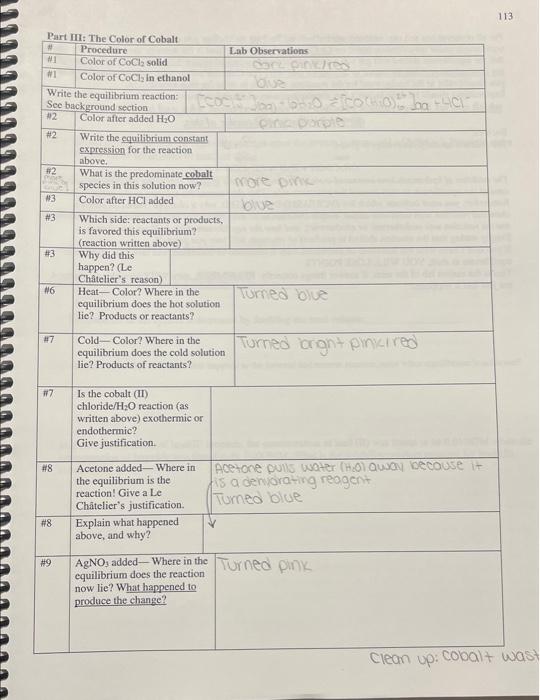 113
Part III: The Color of Cobalt
# Procedure Lab Observations
#1 Color of CoCl₂ solid dark pink/red
#1 Color of CoCl₂ in ethanol blue
Write the equilibrium reaction:
See background section
#2 Color after added H₂O pink purple
#2 Write the equilibrium constant
expression for the reaction
above.
#2 What is the predominate cobalt
species in this solution now? more pink
#3 Color after HCl added blue
#3 Which side: reactants or products,
is favored this equilibrium?
(reaction written above)
#3 Why did this
happen? (Le
Châtelier's reason)
#6 Heat— Color? Where in the Turned blue
equilibrium does the hot solution
lie? Products or reactants?
#7 Cold— Color? Where in the Turned bright pink/red
equilibrium does the cold solution
lie? Products of reactants?
#7 Is the cobalt (II)
chloride/H₂O reaction (as
written above) exothermic or
endothermic?
Give justification.
#8 Acetone added— Where in Acetone pulls water (H₂O) away because it
the equilibrium is the is a dehydrating reagent
reaction! Give a Le Turned blue
Châtelier's justification.
#8 Explain what happened
above, and why?
#9 AgNO₃ added— Where in the Turned pink
equilibrium does the reaction
now lie? What happened to
produce the change?
Clean up: cobalt wast